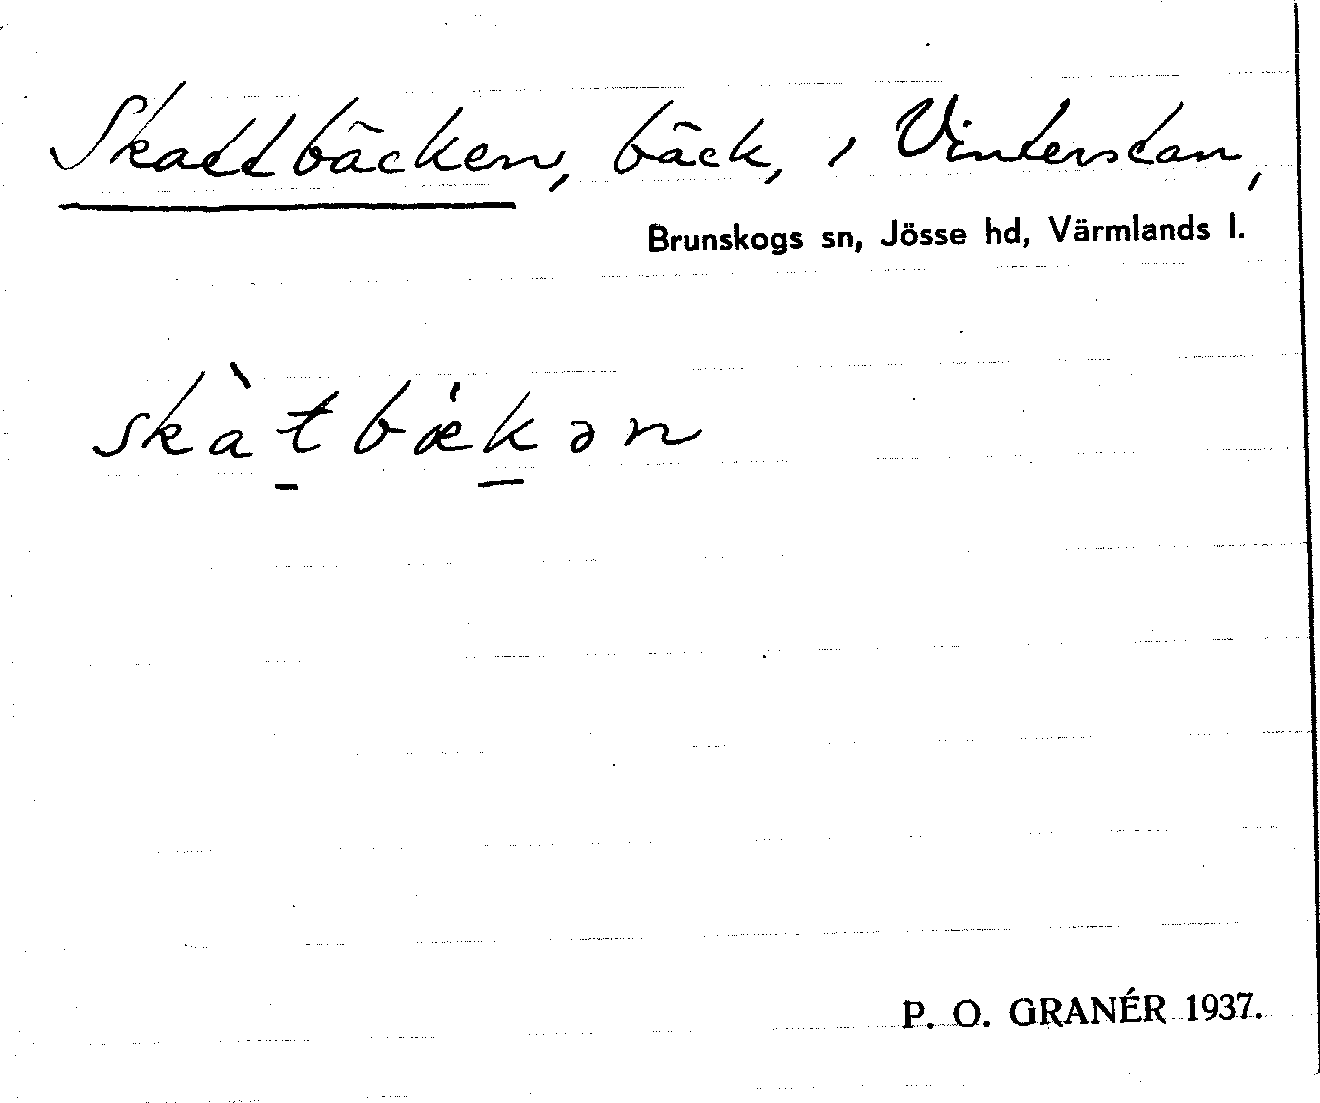 Skattbäcken, bäck, i Vinterstan,
Brunskogs sn, Jösse hd, Värmlands l.
skàt̲bæ̍k̲ən
P. O. GRANÉR 1937.